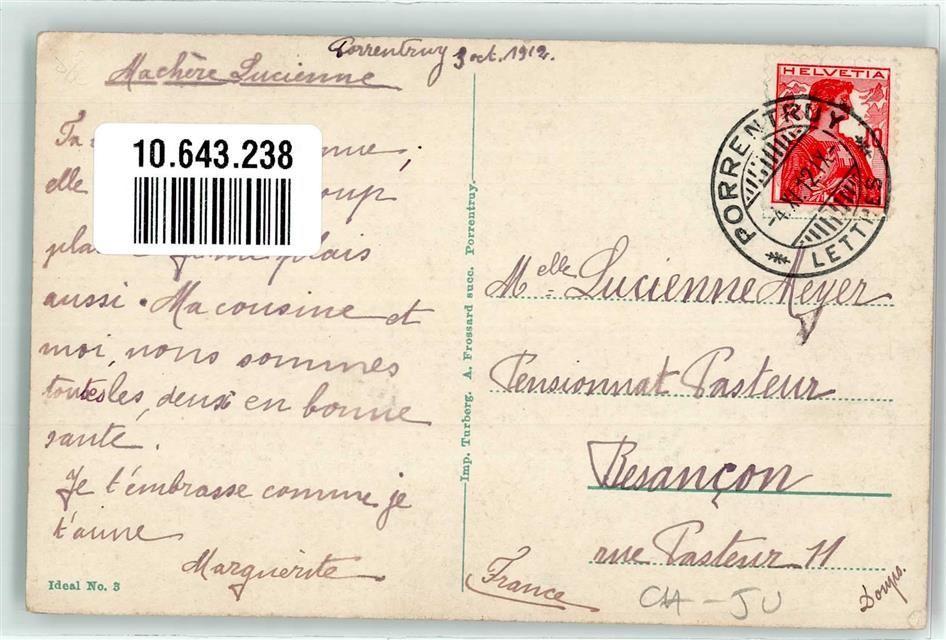 Porrentruy 3 oct. 1912.
Ma chère Lucienne
Ta
elle
plais
aussi. Ma cousine et
moi, nous sommes
toutes les deux en bonne
sante.
Je t'embrasse comme je
t'aime
Marguerite
Ideal No. 3
10.643.238
Imp. Turberg. A. Frossard succ. Porrentruy.
HELVETIA
10
PORRENTRUY
LETTRES
Melle Lucienne Meyer
Pensionnat Pasteur
Besançon
rue Pasteur 11
France
Doubs.
CH - JU